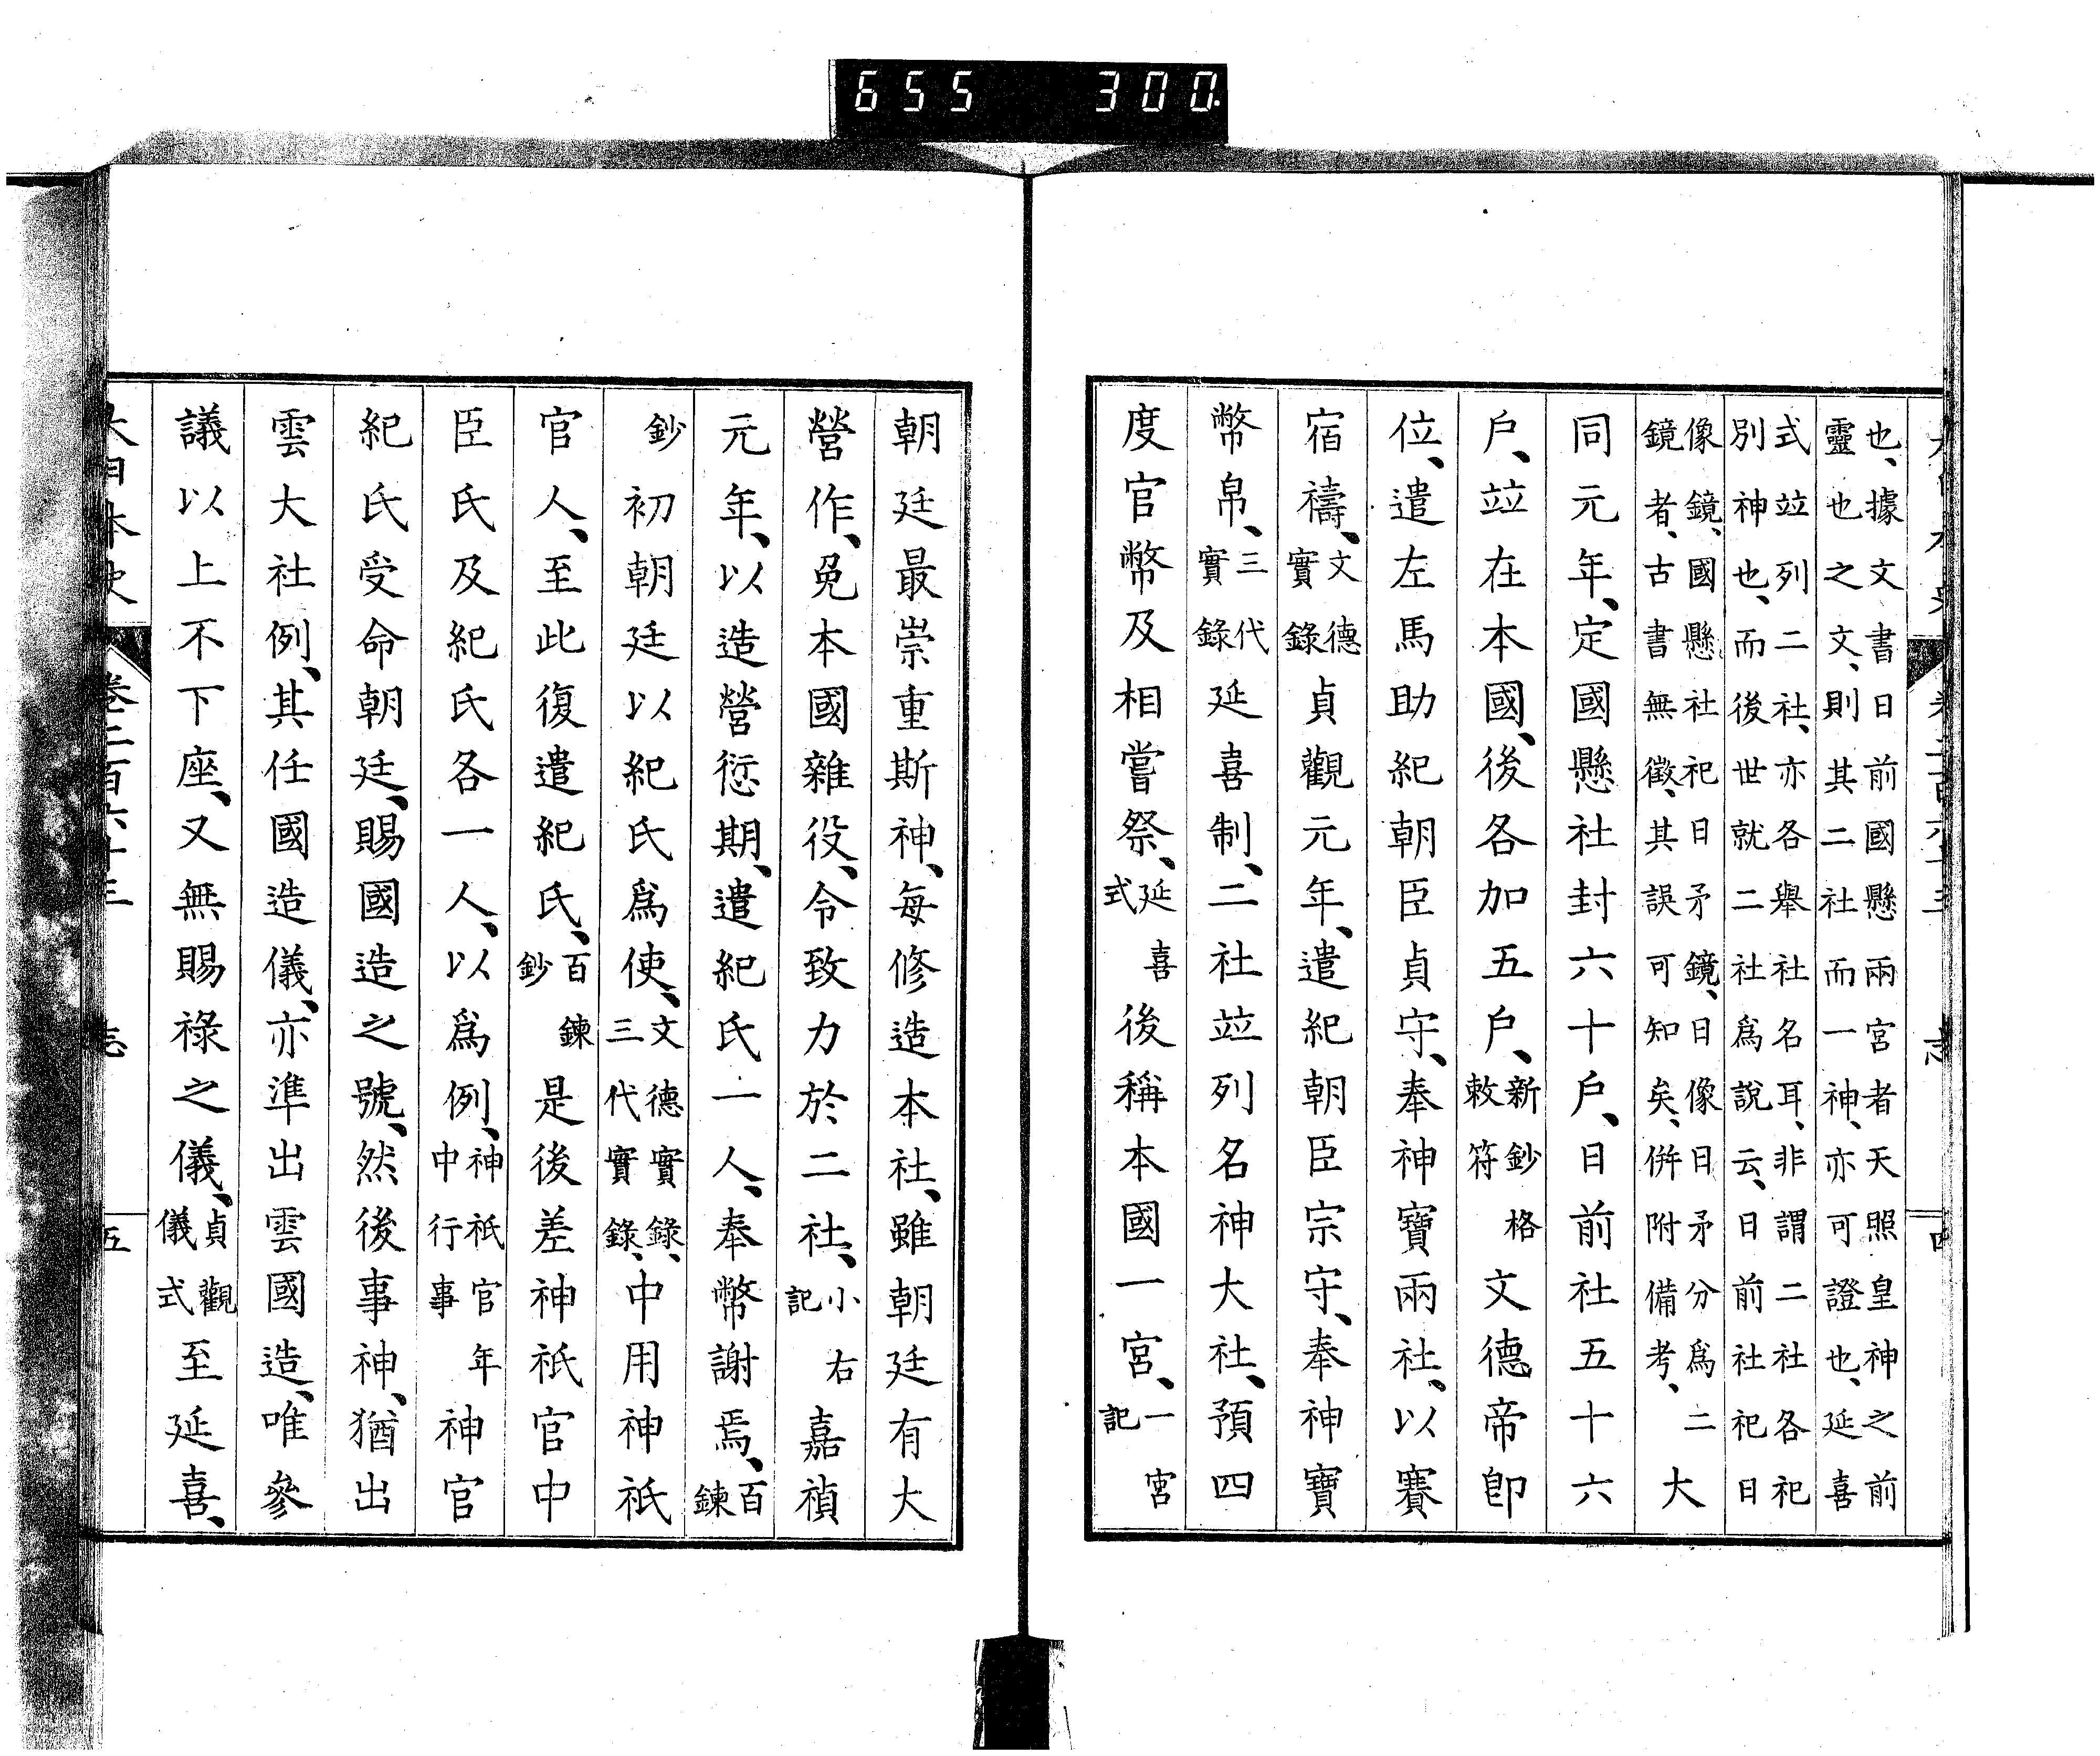 655 300
也、據文書日前國懸兩宮者天照皇神之前
靈也之文、則其二社而一神、亦可證也、延喜
式竝列二社、亦各舉社名耳、非謂二社各祀
別神也、而後世就二社爲說云、日前社祀日
像鏡、國懸社祀日矛鏡、日像日矛分爲二
鏡者、古書無徵、其誤可知矣、併附備考、大
同元年、定國懸社封六十戶、日前社五十六
戶、竝在本國、後各加五戶、新鈔格敕符文德帝卽
位、遣左馬助紀朝臣貞守、奉神寶兩社、以賽
宿禱、文德實錄貞觀元年、遣紀朝臣宗守、奉神寶
幣帛、三代實錄延喜制、二社竝列名神大社、預四
度官幣及相嘗祭、延喜式後稱本國一宮、一宮記
朝廷最崇重斯神、每修造本社、雖朝廷有大
營作、免本國雜役、令致力於二社、小右記嘉禎
元年、以造營愆期、遣紀氏一人、奉幣謝焉、百鍊
鈔初朝廷以紀氏爲使、文德實錄、三代實錄、中用神祇
官人、至此復遣紀氏、百鍊鈔是後差神祇官中
臣氏及紀氏各一人、以爲例、神祇官年中行事神官
紀氏受命朝廷、賜國造之號、然後事神、猶出
雲大社例、其任國造儀、亦準出雲國造、唯參
議以上不下座、又無賜祿之儀、貞觀儀式至延喜、
大日本史 卷二百六十三 志 五